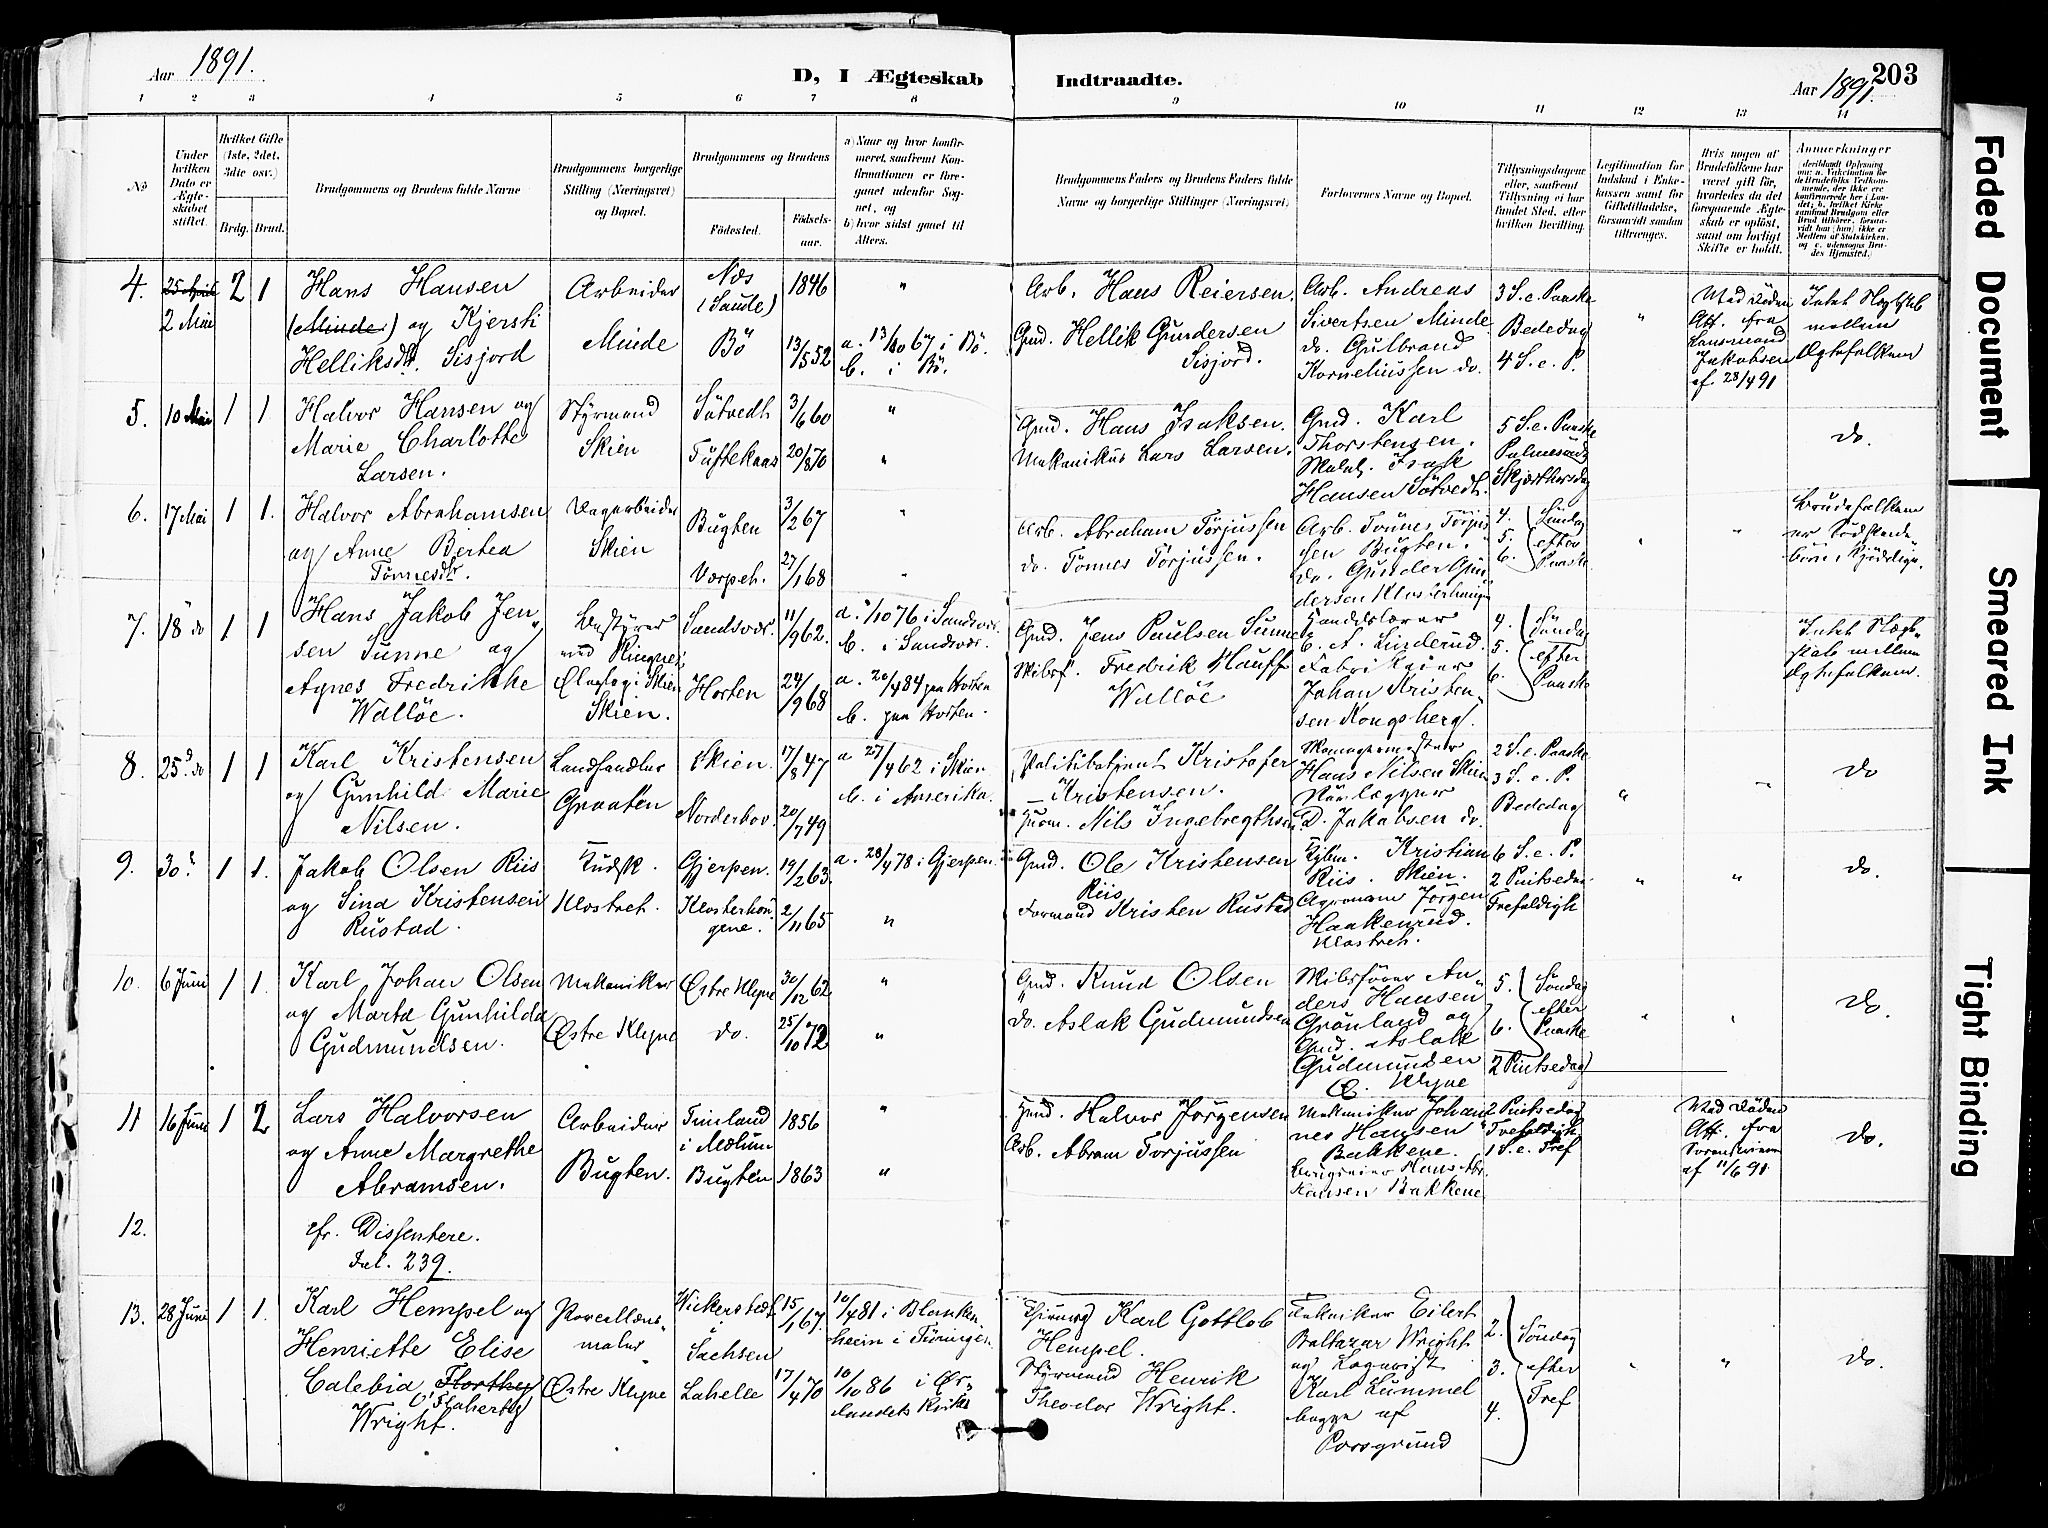 Aar 1891.
D, I Ægteskab Indtraadte.
Aar 1891.
203
1 2 3 4 5 6 7 8 9 10 11 12 13 14
No
Under hvilken Dato er Ægteskabet stiftet.
Hvilket Gifte (1ste, 2det, 3die osv.)
Brdg. Brud.
Brudgommens og Brudens fulde Navne
Brudgommens borgerlige Stilling (Næringsvei) og Bopæl.
Brudgommens og Brudens
Fødested.
Fødselsaar.
a) Naar og hvor konfirmeret, saafremt Konfirmationen er foregaaet udenfor Sognet, og
b) hvor sidst gaaet til Alters.
Brudgommens Faders og Brudens Faders fulde Navne og borgerlige Stillinger (Næringsvei)
Forlovernes Navne og Bopæl.
Tillysningsdagene eller, saafremt Tillysning ei har fundet Sted, efter hvilken Bevilling.
Legitimation for Indskud i Enkekassen samt for Giftetilladelse, forsaavidt saadan tiltrænges.
Hvis nogen af Brudefolkene har været gift før, hvorledes da det foregaaende Ægteskab er opløst, samt om lovligt Skifte er holdt.
Anmærkninger
4. 25 April 2 Mai 2 1
Hans Hansen
(Minde) og Kjersti
Helliksdtr. Sisjord
Arbeider
Minde
Næs
(Saude)
Bö
1846
13/5 52
"
a. 13/10 67 i Bö.
b. i Bö.
Arb. Hans Reiersen.
Gmd. Hellik Gundersen
Sisjord.
Arb. Andreas
Sivertsen Minde
do. Gulbrand
Kornelinssen do.
3 S. e. Paaske
Bededag
4 S. e. P.
"
Ved Döden
Att. fra
Lensmand
Jakobsen
af 28/4 91
Intet Slegtskab
mellem
Ægtefolkene
5. 10 Mai 1 1.
Halvor Hansen og
Marie Charlotte
Larsen.
Styrmand
Skien
Sötvedt
Tuftekaas
3/6 60
20/8 70
"
"
Gmd. Hans Isaksen.
Mekanikus Lars Larsen.
Gmd. Karl
Thorstensen.
Isak
Hansen Sötvedt.
5 S. e. Paaske
Palmesönd
Skjærthorsdag
do.
6. 17 Mai 1 1.
Halvor Abrahamsen
og Anne Bertea
Tönnesdtr.
Dagarbeider
Skien
Bugten
Værpet.
3/2 67
27/1 68
Arb. Abraham Törjussen
do. Tönnes Törjussen.
Arb. Tönnes Törjus
sen Bugten.
do. Gunder Gun
dersen Klosterhaugen
4. Söndag
5. efter
6. Paaske
"
"
Brudefolkene
er Södskende
börn i Kjödelige.
7. 18 do 1 1
Hans Jakob Jen
sen Tunne og
Agnes Fredrikke
Wallöe.
Bestyrer
ved Ringnes
Ølop​lag i Skien
Skien.
Sandsvær.
Horten
11/9 62.
24/9 68
a. 1/10 76 i Sandsvær.
b. i Sandsvær.
a. 20/4 84 paa Horten
b. paa Horten.
Gmd. Jens Paulsen Tunne
Skibsf. Fredrik Hauff
Wallöe
C. A. Linderud.
Fabrikeier
Johan Kristen
sen Kongsberg.
4. Söndag
5. efter
6. Paaske
Intet Slegt
skab mellem
Ægtefolkene.
8. 25 do 1 1
Karl Kristensen
og Gunhild Marie
Nilsen.
Landhandler
Graaten
Skien.
Norderhov.
17/8 47
20/7 49
a 27/4 62 i Skien
b. i Amerika.
Politibetjent Kristofer
Kristensen.
Nils Ingebregthsen
Skomagermester
Hans Nilsen Skien
Rörlægger
D. Jakobsen do.
2 S. e. Paaske
3 S. e. P.
Bededag
"
"
do
9. 30. 1 1.
Jakob Olsen Riis
og Sina Kristensen
Rustad.
Kudsk.
Klostret.
Gjerpen.
Klosterhou
gene.
19/2 63.
2/11 65
a. 28/4 78 i Gjerpen.
"
Gmd. Ole Kristensen
Riis
Formand Kristen Rustad
Kjbm. Kristian
Riis. Skien.
Agronom Jörgen
Haakenrud.
Klostret.
6 S. e. P.
2 Pintsedag
Trefoldigh
"
"
do.
10. 6 Juni 1 1.
Karl Johan Olsen
og Marta Gunhilda
Gudmundsen.
Mekaniker
Østre Klyve
Østre Klyve
do.
30/12 62
25/10 72
"
"
Gmd. Knud Olsen
do. Aslak Gudmundsen
Skibsförer An
ders Hansen
Grönland og
Gmd. Aslak
Gudmunsen
Ø. Klyve
5. Söndag
efter
6. Paaske
2 Pintsedag
do.
11 16 Juni 1 2
Lars Halvorsen
og Anne Margrethe
Abramsen.
Arbeider
Bugten.
Tinland
i Mælum
Bugten
1856
1863
"
"
Gmd. Halvor Jörgensen
Arb. Abram Torjussen
Mekaniker Johan
nes Hansen
Bakkene.
Hansen Bakkene
2 Pintsedag
Trefoldigh
1 S. e. Tref
Ved Döden
Att. fra
Sorenskriveren
af 11/6 91
do.
12.
cfr. Dissentere.
Fol. 239.
13. 28 Juni 1 1.
Karl Hempel og
Henriette Elise
Calebia Florthey
Flaherty
Wright.
Porcellæns
maler
Østre Klyve
Wickerstedt
i
Sachsen
Lahelle
15/1 67.
17/4 70
10/4 81 i Blanken
heim i Türingen
10/10 86 i Ør
landets Kirke
Karl Gottlob
Hempel.
Styrmand Henrik
Theodor Wright.
Tekniker Eilert
Baltazar Wright
og Logarist
Karl Lummel
begge af
Porsgrund
2. Söndag
3. efter
4. Tref
"
do.
Faded Document
Smeared Ink
Tight Binding